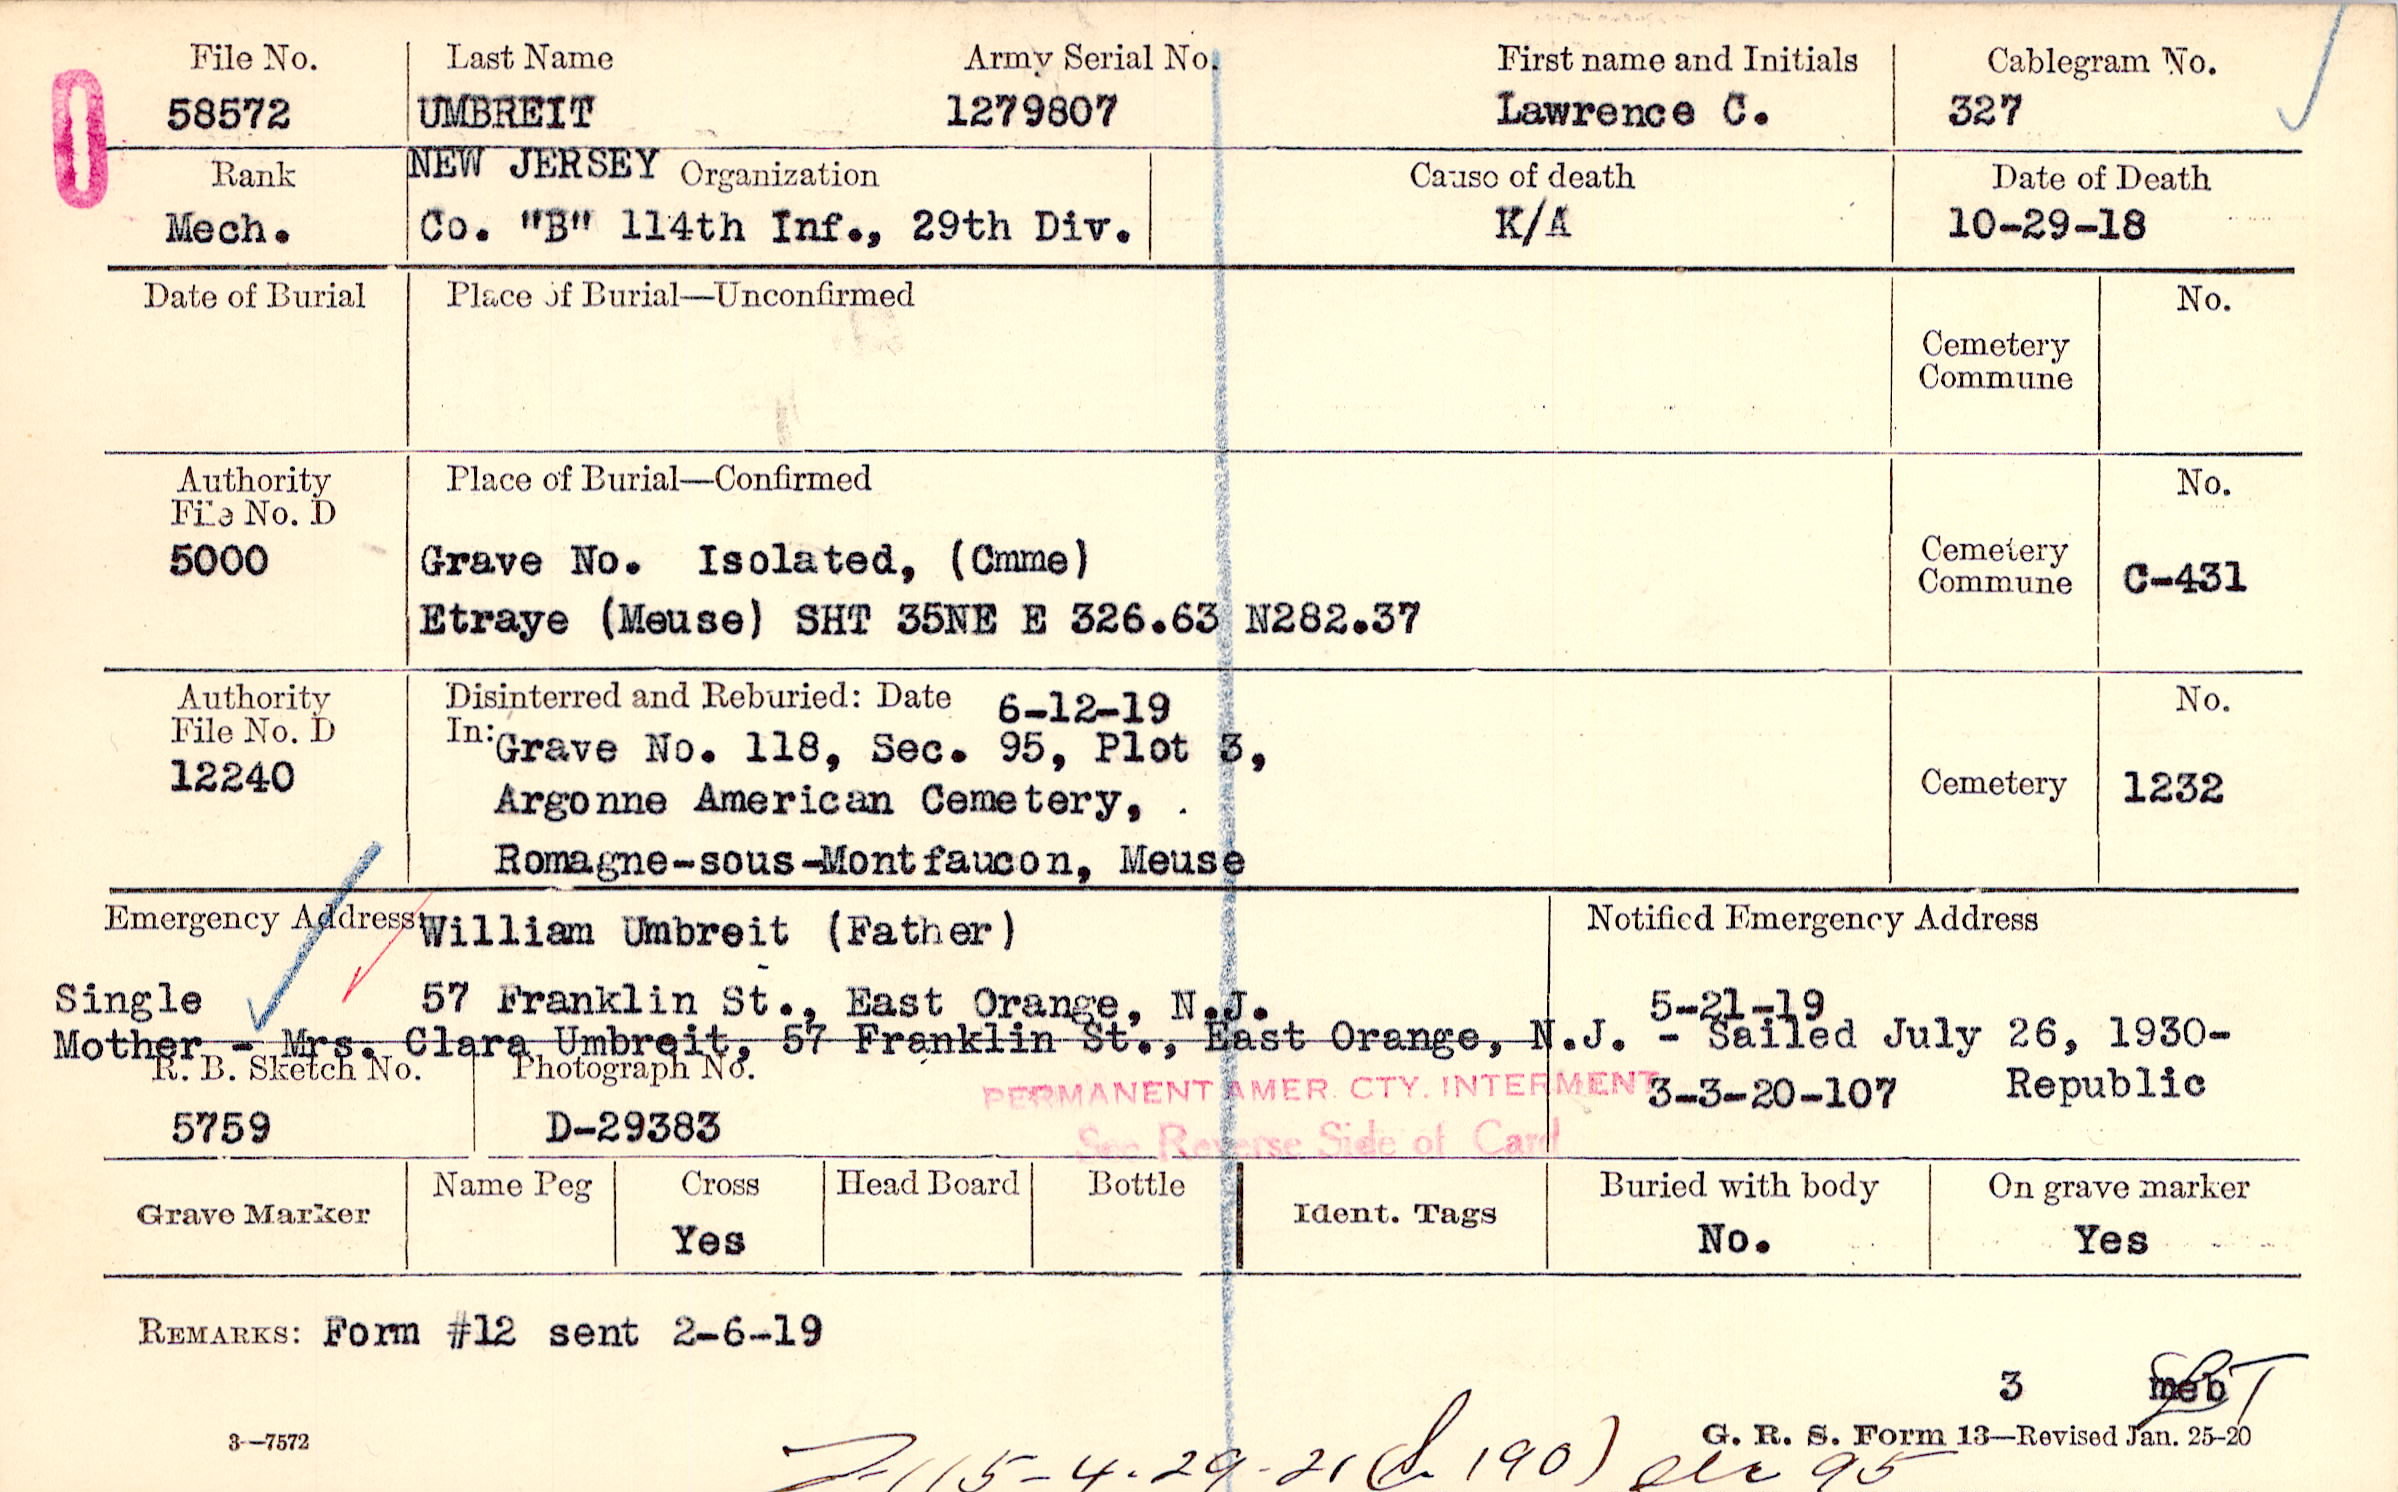 File No. Last Name Army Serial No. First name and Initials Cablegram No.
58572 UMBREIT 1279807 Lawrence C. 327
Rank NEW JERSEY Organization Cause of death Date of Death
Mech. Co. "B" 114th Inf., 29th Div. K/A 10-29-18
Date of Burial Place of Burial—Unconfirmed No.
Cemetery
Commune
Authority Place of Burial—Confirmed No.
File No. D
5000 Grave No. Isolated, (Cmme) Cemetery
Commune C-431
Etraye (Meuse) SHT 35NE E 326.63 N282.37
Authority Disinterred and Reburied: Date 6-12-19 No.
File No. D In: Grave No. 118, Sec. 95, Plot 3,
12240 Argonne American Cemetery, . Cemetery 1232
Romagne-sous-Montfaucon, Meuse
Emergency Address William Umbreit (Father) Notified Emergency Address
Single 57 Franklin St., East Orange, N.J. 5-21-19
Mother - Mrs. Clara Umbreit, 57 Franklin St., East Orange, N.J. - Sailed July 26, 1930-
Republic
R. B. Sketch No. Photograph No. PERMANENT AMER. CTY. INTERMENT 3-3-20-107
5759 D-29383 See Reverse Side of Card
Grave Marker Name Peg Cross Head Board Bottle Ident. Tags Buried with body On grave marker
Yes No. Yes
REMARKS: Form #12 sent 2-6-19
3 meb
3—7572 G. R. S. Form 13—Revised Jan. 25-20
115-4-29-21 190) 95